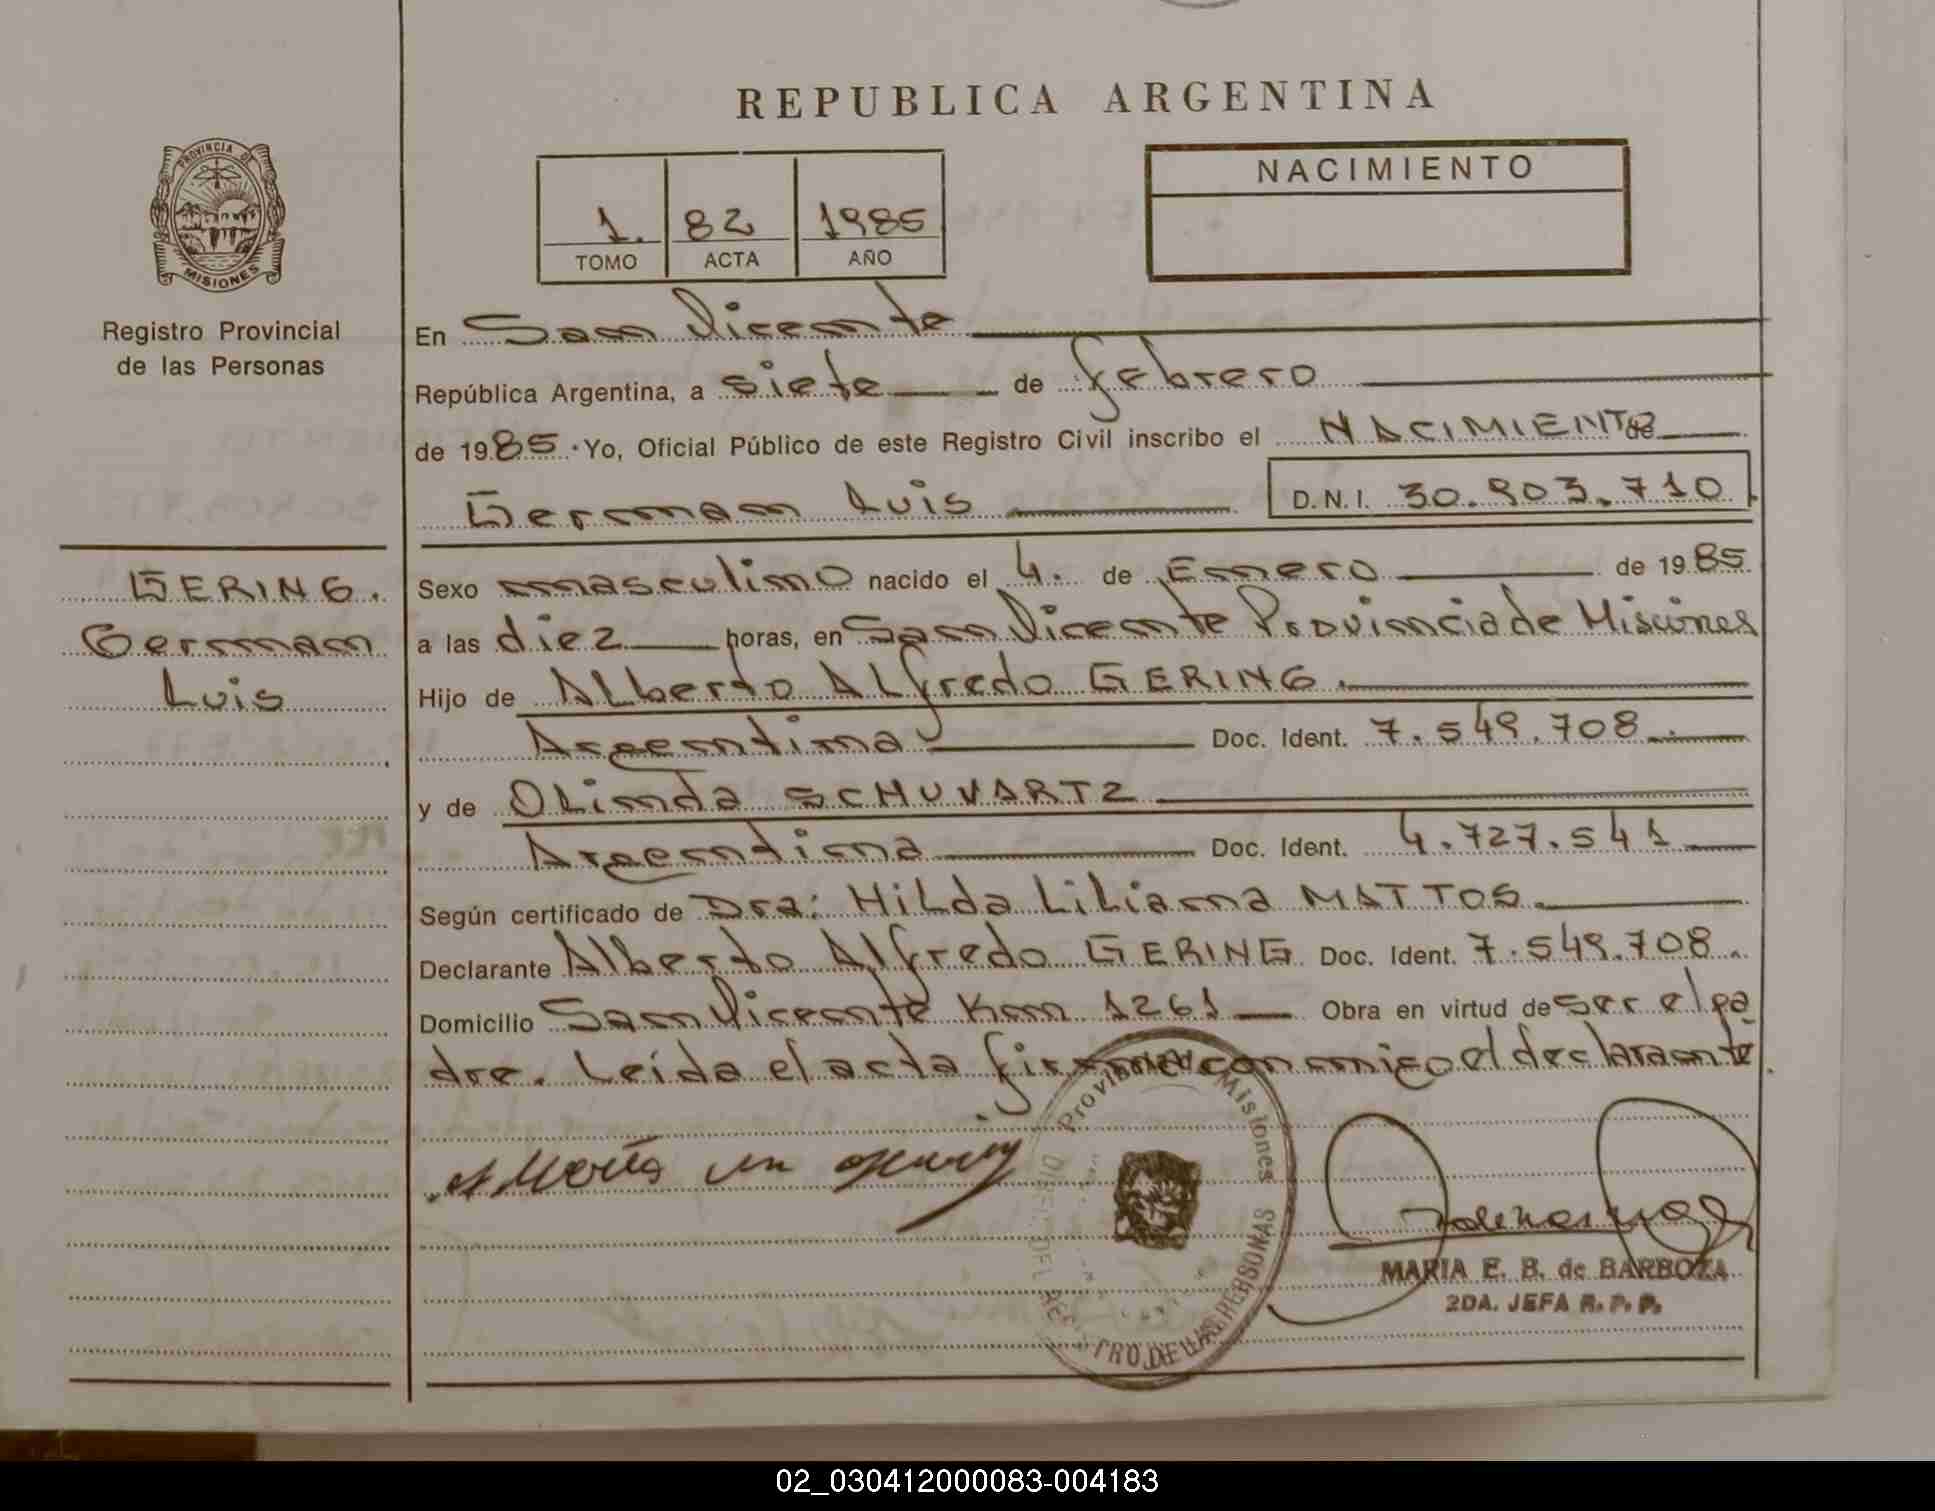 REPUBLICA ARGENTINA
PROVINCIA DE
MISIONES
Registro Provincial
de las Personas
1. 82 1985
TOMO ACTA AÑO
NACIMIENTO
En San Vicente
República Argentina, a siete de febrero
de 1985 Yo, Oficial Público de este Registro Civil inscribo el NACIMIENTO de
German Luis D.N.I. 30.903.710
GERING.
German
Luis
Sexo masculino nacido el 4. de Enero de 1985
a las diez horas, en San Vicente Provincia de Misiones
Hijo de Alberto Alfredo GERING.
Argentina Doc. Ident. 7.549.708
y de OLinda SCHUVARTZ
Argentina Doc. Ident. 4.727.541
Según certificado de Dra: HiLda LiLiana MATTOS.
Declarante Alberto Alfredo GERING Doc. Ident. 7.549.708.
Domicilio San Vicente Km 1261 Obra en virtud de ser el pa
dre. Leída el acta firma conmigo el declarante.
Provincia Misiones
PERSONAS
MARIA E. B. de BARBOZA
2DA. JEFA R. P. P.
02_030412000083-004183